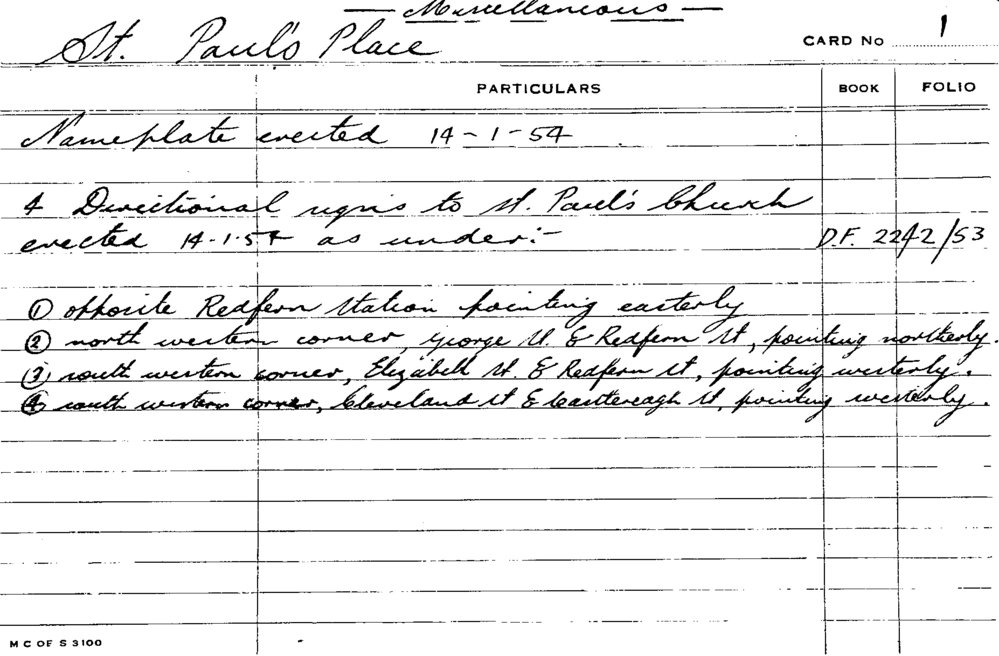 — Miscellaneous —
St. Paul's Place
CARD No 1
PARTICULARS BOOK FOLIO
Nameplate erected 14-1-54
4 Directional signs to St. Paul's Church
erected 14.1.54 as under:-
D.F. 2242/53
① opposite Redfern Station pointing easterly
② north western corner, George St. & Redfern St, pointing northerly.
③ south western corner, Elizabeth St. & Redfern St, pointing westerly.
④ south western corner, Cleveland St & Castlereagh St, pointing westerly.
M C OF S 3100